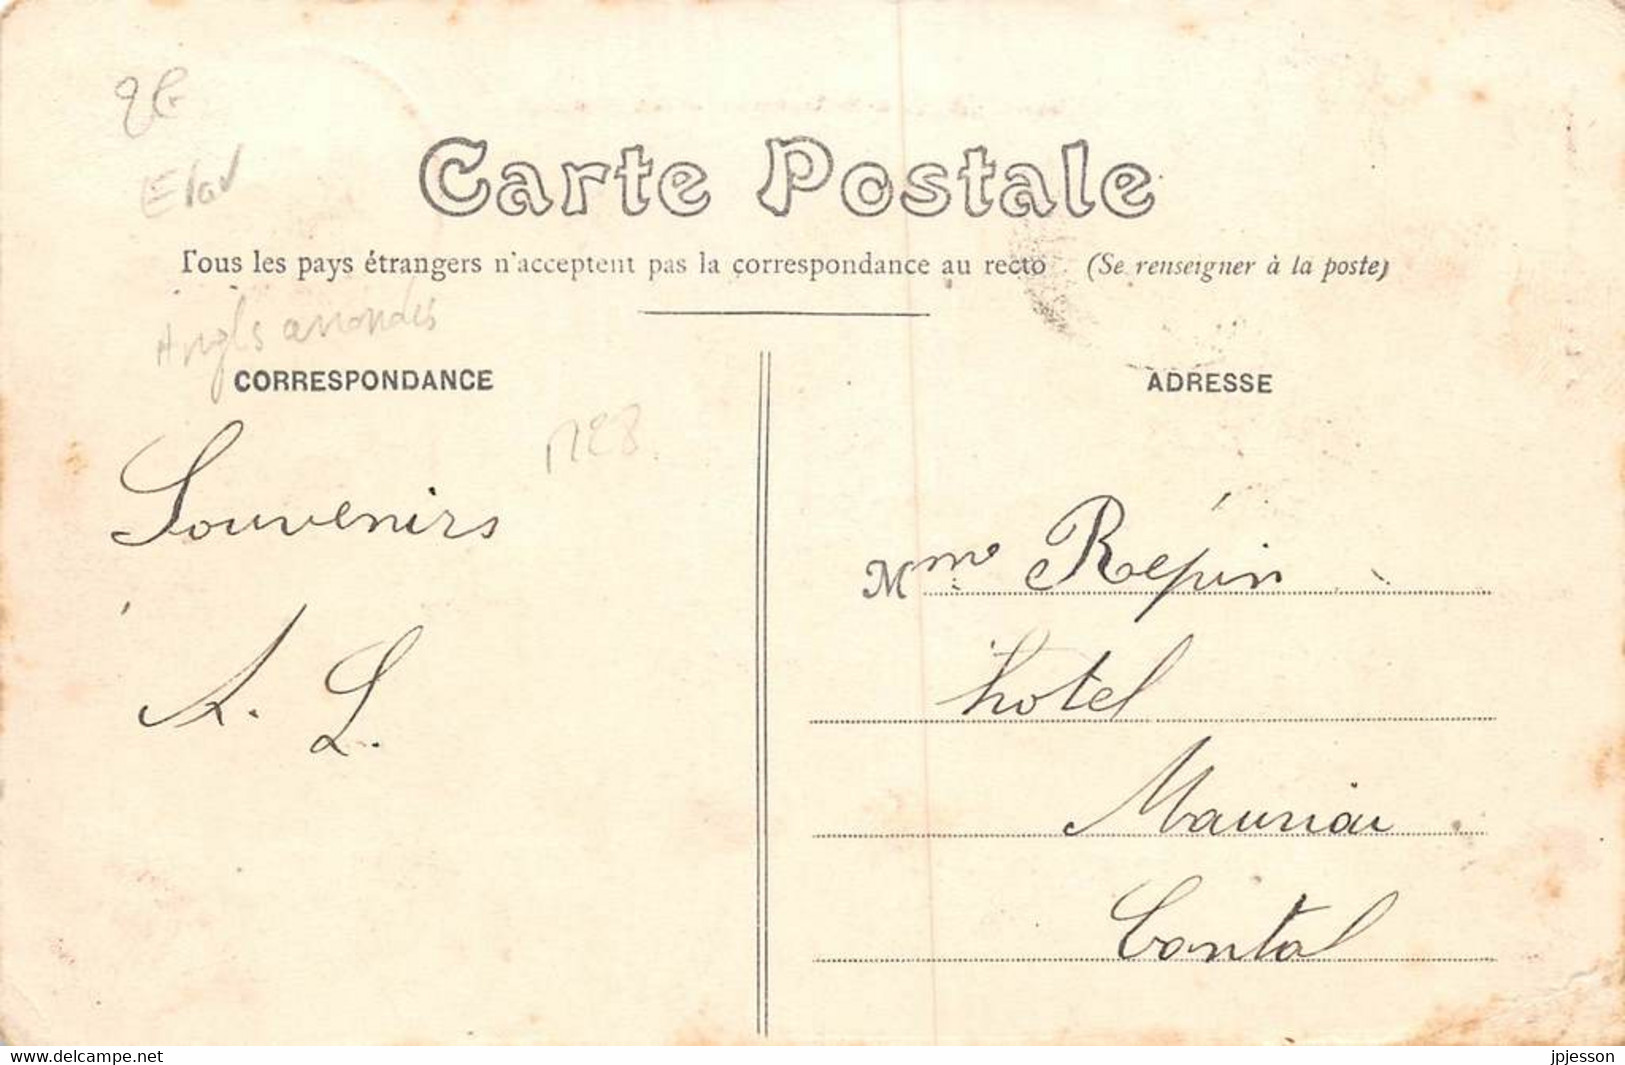 2€
Etat
Carte Postale
Tous les pays étrangers n'acceptent pas la correspondance au recto (Se renseigner à la poste)
Angles arrondis
CORRESPONDANCE
Souvenirs
A. L.
ADRESSE
Mme Répin
hotel
Mauriac
Cantal
www.delcampe.net
jpjesson